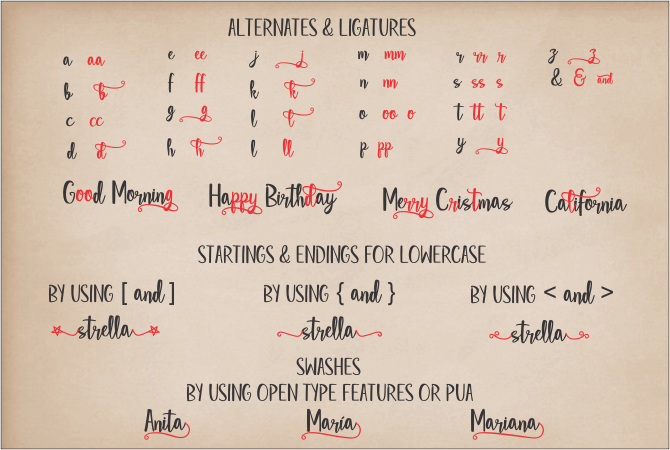 ALTERNATES & LIGATURES
a aa e ee j j m mm r rr r z z
b b f ff k k n nn s ss s & & and
c cc g g l l o oo o t tt t
d d h h l ll p pp y y
Good Morning Happy Birthday Merry Cristmas California
STARTINGS & ENDINGS FOR LOWERCASE
BY USING [ and ] BY USING { and } BY USING < and >
strella strella strella
SWASHES
BY USING OPEN TYPE FEATURES OR PUA
Anita María Mariana